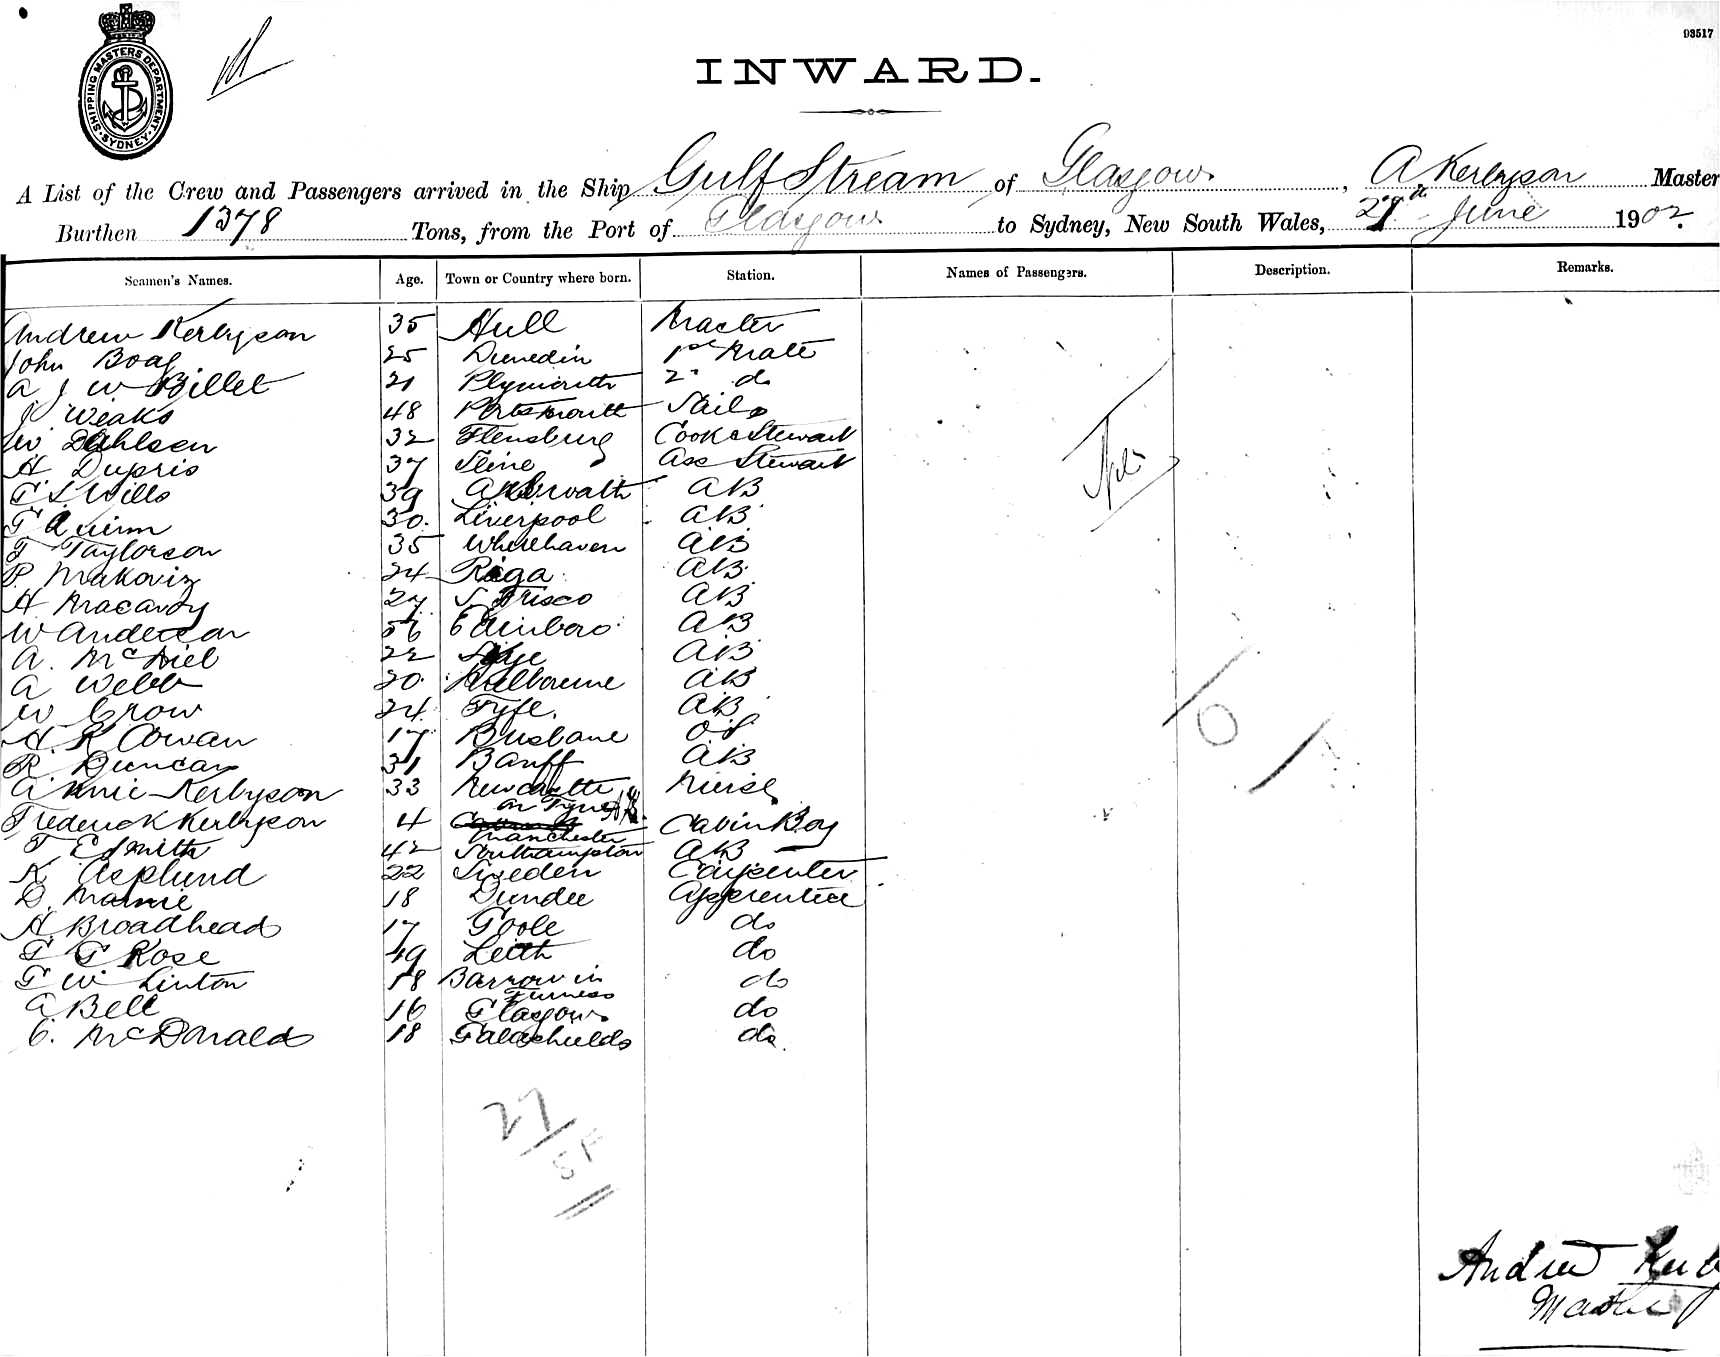 93517
SHIPPING MASTERS DEPARTMENT SYDNEY
INWARD.
A List of the Crew and Passengers arrived in the Ship Gulf Stream of Glasgow, A Kerbyson Master
Burthen 1378 Tons, from the Port of Glasgow to Sydney, New South Wales, June 1902.
Seamen's Names. Age. Town or Country where born. Station. Names of Passengers. Description. Remarks.
Andrew Kerbyson 35 Hull Master
John Boag 25 Dunedin 1st Mate
A J W Billet 21 Plymouth 2" do
J Weaks 48 Portsmouth Sails
W Dahlsen 32 Flensburg Cook & Stewart
H Dupris 37 Ass Stewart
Wills 39 AB
Quinn 30 Liverpool AB
T Taylorson 35 Whitehaven AB
P Makoviz 24 Riga AB
H Macardy 27 S Frisco AB
W Anderson 56 Edinboro AB
A. McNiel 22 AB
A Webb 20 Melbourne AB
W Crow 24 Fyfe. AB
H R Cowan 17 Brisbane OS
R Duncan 31 Banff AB
Annie Kerbyson 33 Newcastle Nurse
on Tyne
Frederick Kerbyson 4 Cabin Boy
Manchester
T E Smith 42 Southampton AB
K Asplund 22 Sweden Carpenter
D. 18 Dundee Apprentice
H Broadhead 17 Goole do
G Rose 19 Leith do
G W Linton 18 Barrow in do
Furness
A Bell 16 Glasgow do
C. McDonald 18 Galashields do
27
Andrew
Master